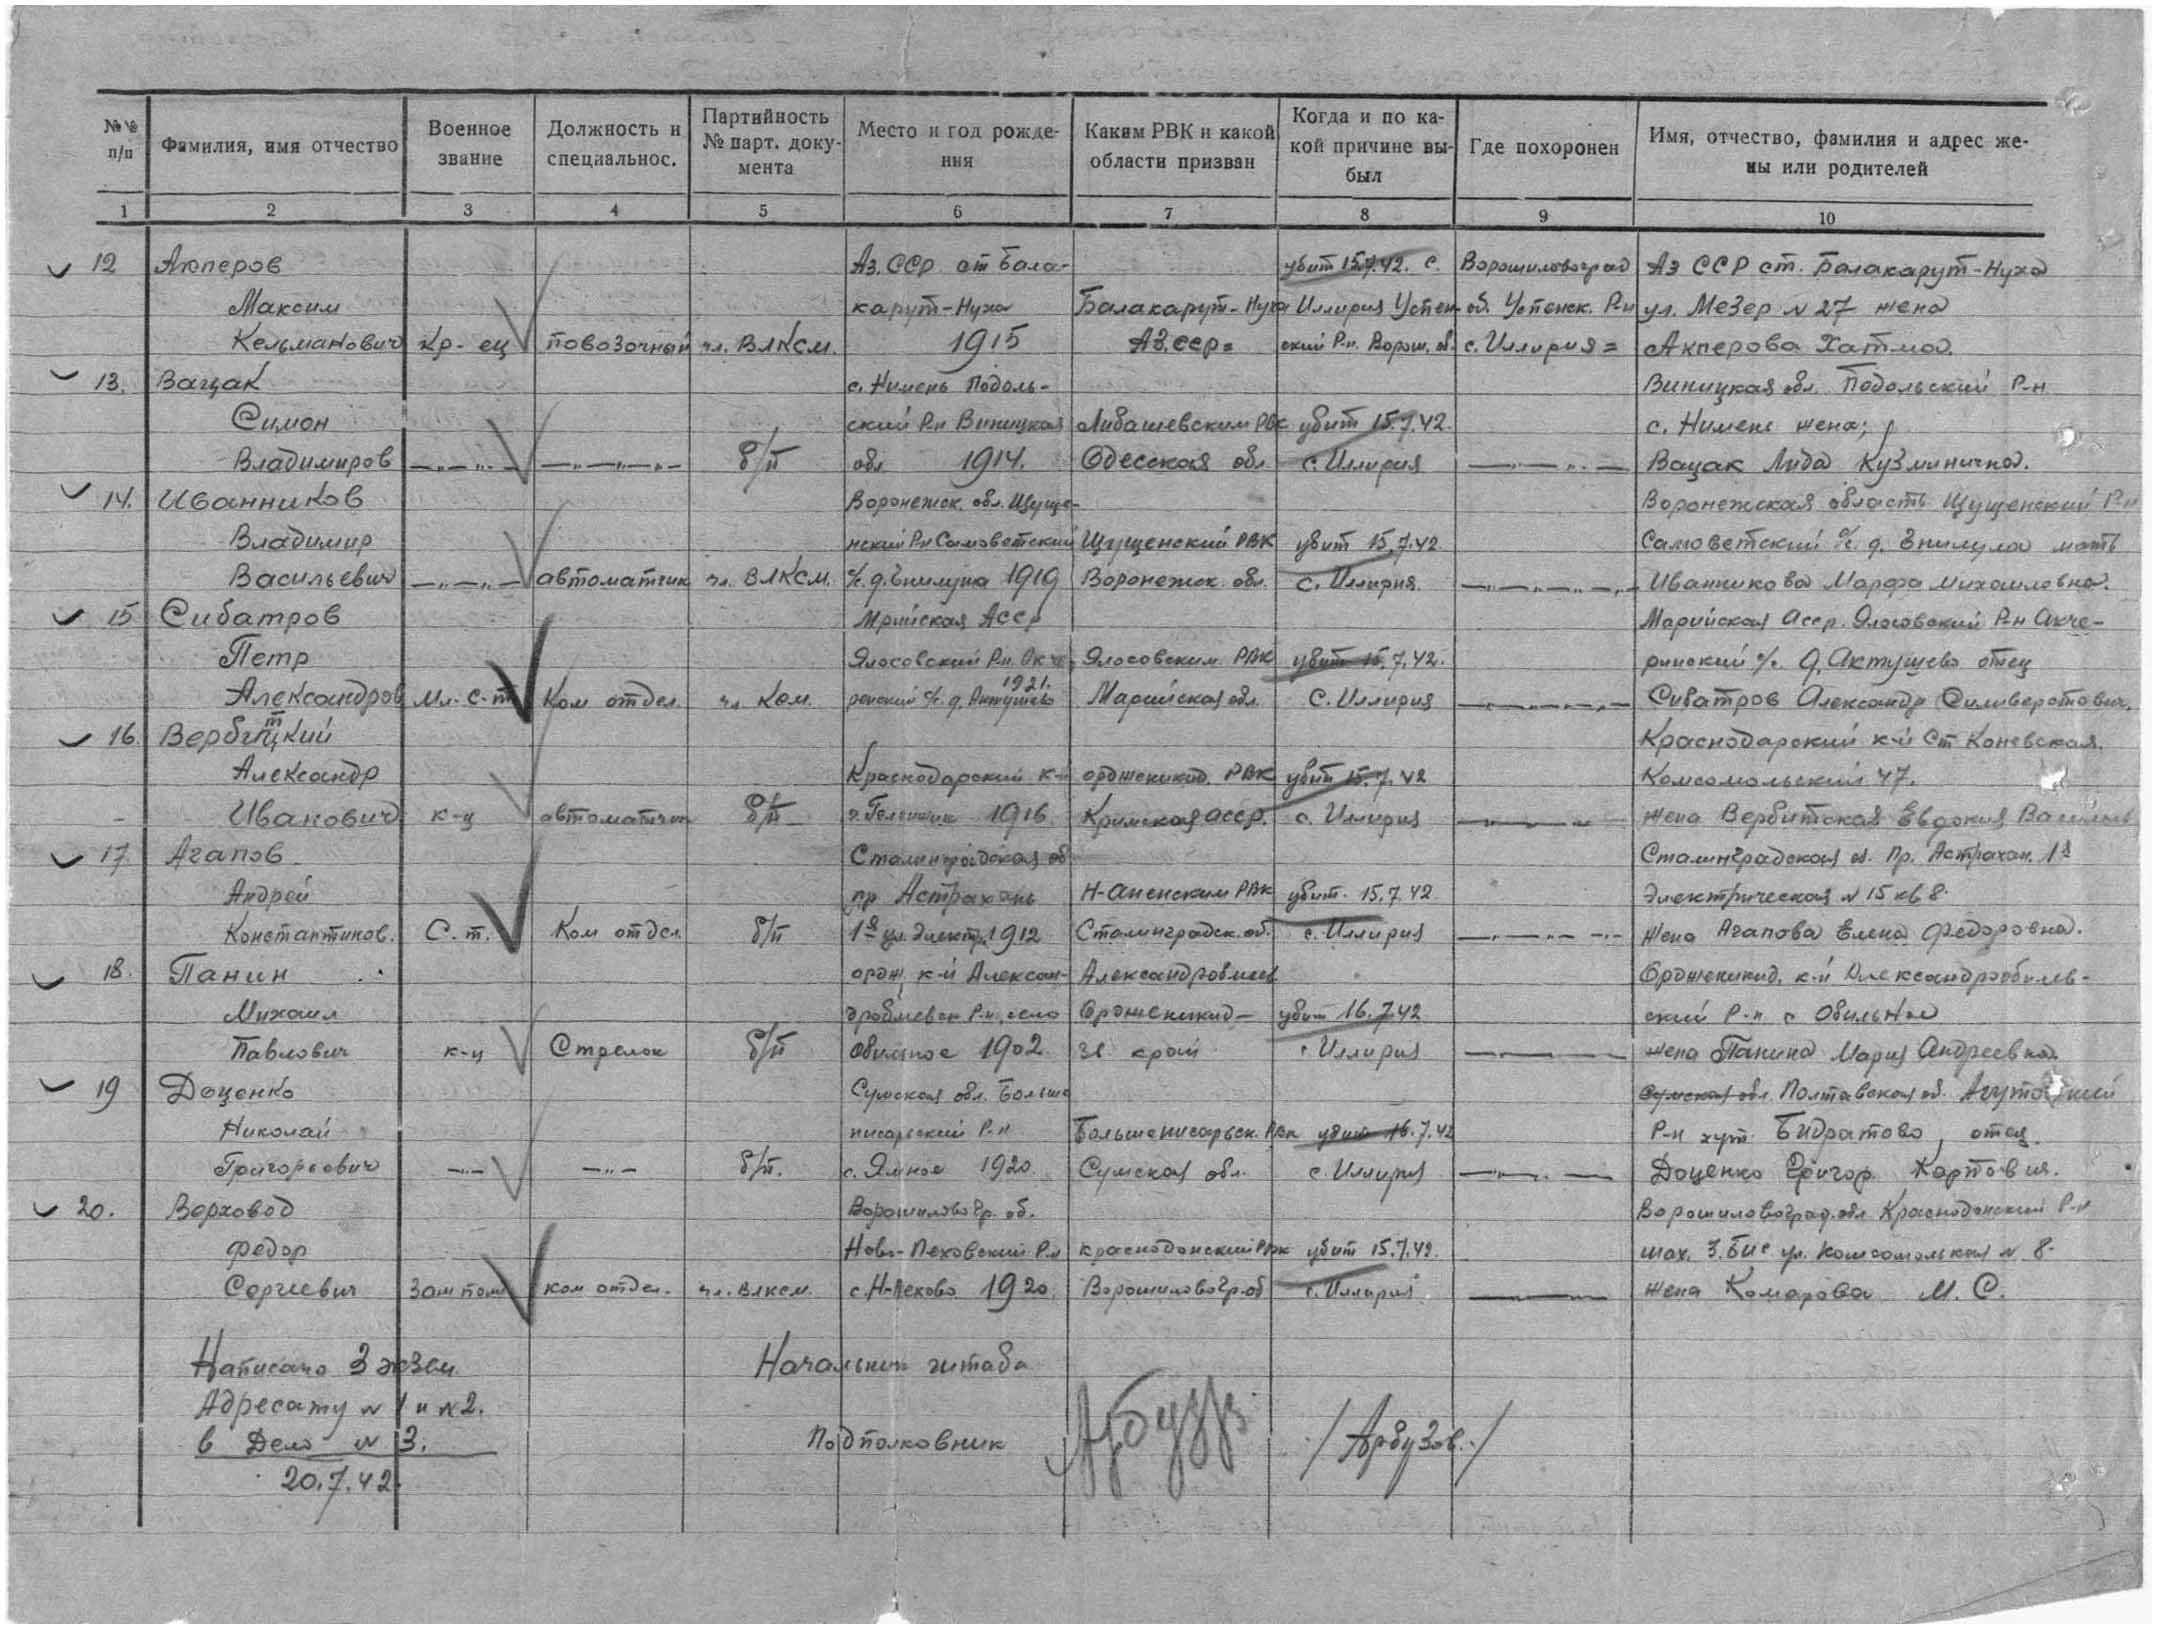 №№ п/п Фамилия, имя отчество Военное звание Должность и специальнос. Партийность № парт. документа Место и год рождения Каким РВК и какой области призван Когда и по какой причине выбыл Где похоронен Имя, отчество, фамилия и адрес жены или родителей
1 2 3 4 5 6 7 8 9 10
12 Акперов Аз. ССР. ст Бала- убит 15.7.42. с. Ворошиловоград Аз ССР ст. Балакарут-Нуха
Максим карут-Нуха Балакарут-Нуха Иллирия Успен- об. Успенск. Р-н ул. Мезер N 27 жена
Кельманович Кр-ец повозочный чл. ВЛКСМ. 1915 Аз.сср= ский Р-н. Ворош. об. с. Иллирия= Акперова Хатма.
13. Вацак с. Нимень Подоль- Виницкая обл. Подольский Р-н
Симон ский Р-н Виницкая Либашевским РВК убит 15.7.42. с. Нимень жена;
Владимиров —„—„— —„—„— б/п обл 1914. Одесская обл с. Иллирия —„— Вацак Лида Кузминична.
14. Иванников Воронежск. обл. Щуще- Воронежская область Щущенский Р-н
Владимир нский Р-н Самоветский Щущенский РВК убит 15.7.42. Самоветский с/с. д. мать
Васильевич —„—„— автоматчик чл. ВЛКСМ. с/с. д. 1919 Воронежск. обл. с. Иллирия. —„—„— Иванникова Марфа Михайловна.
15 Сибатров Мрийская АССР Марийская Асср. Элосовский Р-н Акче-
Петр Элосовский Р-н. Элосовским РВК убит 15.7.42. ринский с/с. д. Актушево отец
Александров Мл. с-т Ком отдел. чл. Ком. 1921. ренский с/с. д. Актушево Марийская обл. с. Иллирия —„—„— Сибатров Александр Силиверстович.
16. Вербитцкий Краснодарский к-й ст Каневская.
Александр Краснодарский к-й ордженикид. РВК убит 15.7.42 Комсомольский 47.
Иванович к-ц автоматчик б/п 1916 Кримская асср. с. Иллирия —„— жена Вербитская Евдокия Васильев
17. Агапов Сталинградская об Сталинградская об. пр. Астрахан. 1я
Андрей пр Астрахань Н-аненским РВК убит. 15.7.42 Электрическая N 15 кв 8.
Константинов. С. т. Ком отдел б/п 1я ул. Электр. 1912 Сталинградск. об. с. Иллирия —„—„— жена Агапова Елена Федоровна.
18. Панин ордж. к-й Алексан- Александровлиев Ордженикид. к-й Александровлиев-
Михаил дровлиевск Р-н, село Ордженикид— убит 16.7.42 ский Р-н с Обильное
Павлович к-ц Стрелок б/п Обильное 1902 зе край с Иллирия —„— жена Панина Мария Андреевна.
19 Доценко Сумская обл. Больше Сумская обл Полтавская об.
Николай писаревский Р-н Большеписаревск. РВК убит 16.7.42 Р-н хут. Бидратово, отец.
Григорьевич —„— —„— б/п. с. Ямное 1920. Сумская обл. с. Иллирия —„— Доценко Григор. Карпович.
20. Верховод Ворошиловогр. об. Ворошиловоград. обл Краснодонский Р-н
Федор Ново- Р-н краснодонский РВК убит 15.7.42. шах. 3. Бис ул. Комсомольская N 8.
Сергиевич Зам пом ком отдел. чл. Влксм. 1920. Ворошиловогр. об с. Иллирия —— жена Комарова М. С.
Написано 3 экзем. Начальник штаба
Адресату N 1 и N 2.
в Дело N 3. Подполковник /Арбузов./
20.7.42.